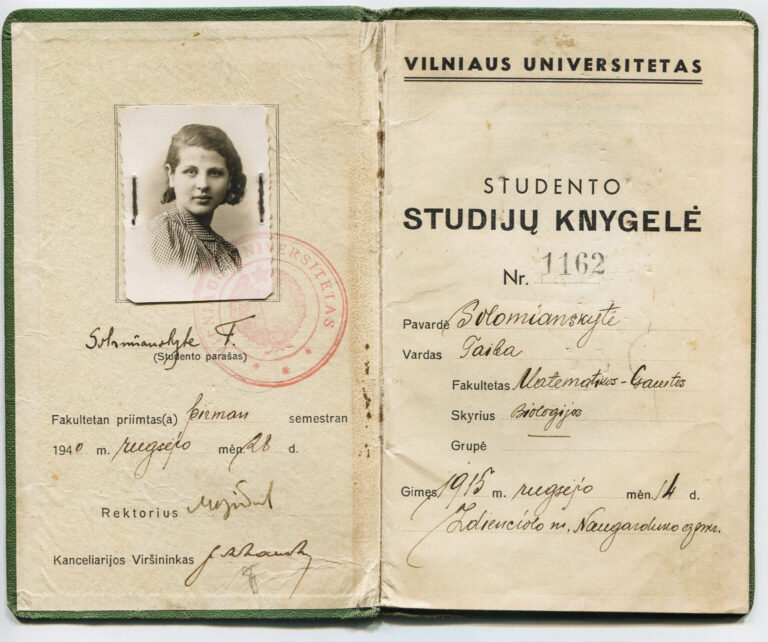 VILNIAUS UNIVERSITETAS
Solomianskyte F.
(Studento parašas)
Fakultetan priimtas(a) pirman semestran
1940 m. rugsėjo mėn. 28 d.
Rektorius
Kanceliarijos Viršininkas
VILNIAUS UNIVERSITETAS
STUDENTO
STUDIJŲ KNYGELĖ
Nr. 1162
Pavardė Solomianskytė
Vardas
Fakultetas Matematikos-Gamtos
Skyrius Biologijos
Grupė
Gimęs 1915 m. rugsėjo mėn. 14 d.
Zdienciolo m. Naugarduko